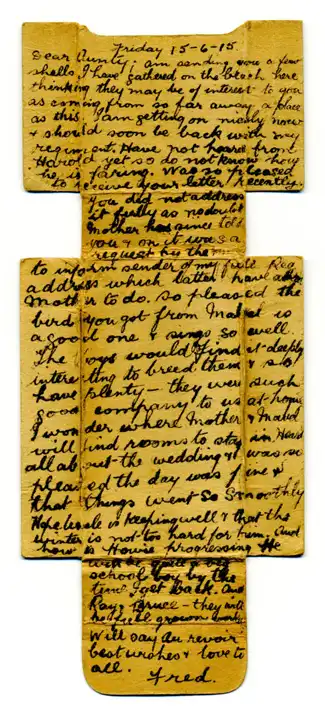 Friday 15-6-15
Dear Aunty. am sending you a few
shells I have gathered on the beach here
thinking they may be of interest to you
as coming from so far away a place
as this. I am getting on nicely now
& should soon be back with my
regiment. Have not heard from
Harold yet so do not know how
he is faring. Was so pleased
to receive your letter recently.
You did not address
it fully as no doubt
Mother has since told
you & on it was a
request by the
to inform sender of my full Reg
address which latter I have
Mother to do. So pleased the
bird you got from Mabel is
a good one & sings so well
The boys would find it deeply
interesting to breed them & so
have plenty - they were such
good company to us at home
I wonder where Mother & Maud
will find rooms to stay in
all about the wedding & was so
pleased the day was fine &
that things went so smoothly
Hope Uncle is keeping well & that the
winter is not too hard for him. And
how is House progressing. He
will be quite a big
school boy by the
time I get back. And
Ray & Bruce - they will
be grown
Will say Au revoir
best wishes & love to
all.
Fred.